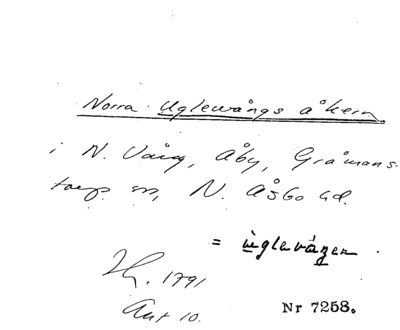 Norra Uglewångs åkern
i N. Vång, Åby, Gråmans-
torps sn, N. Åsbo hd.
= ùglevã́gen
1791
Akt 10.
Nr 7258.